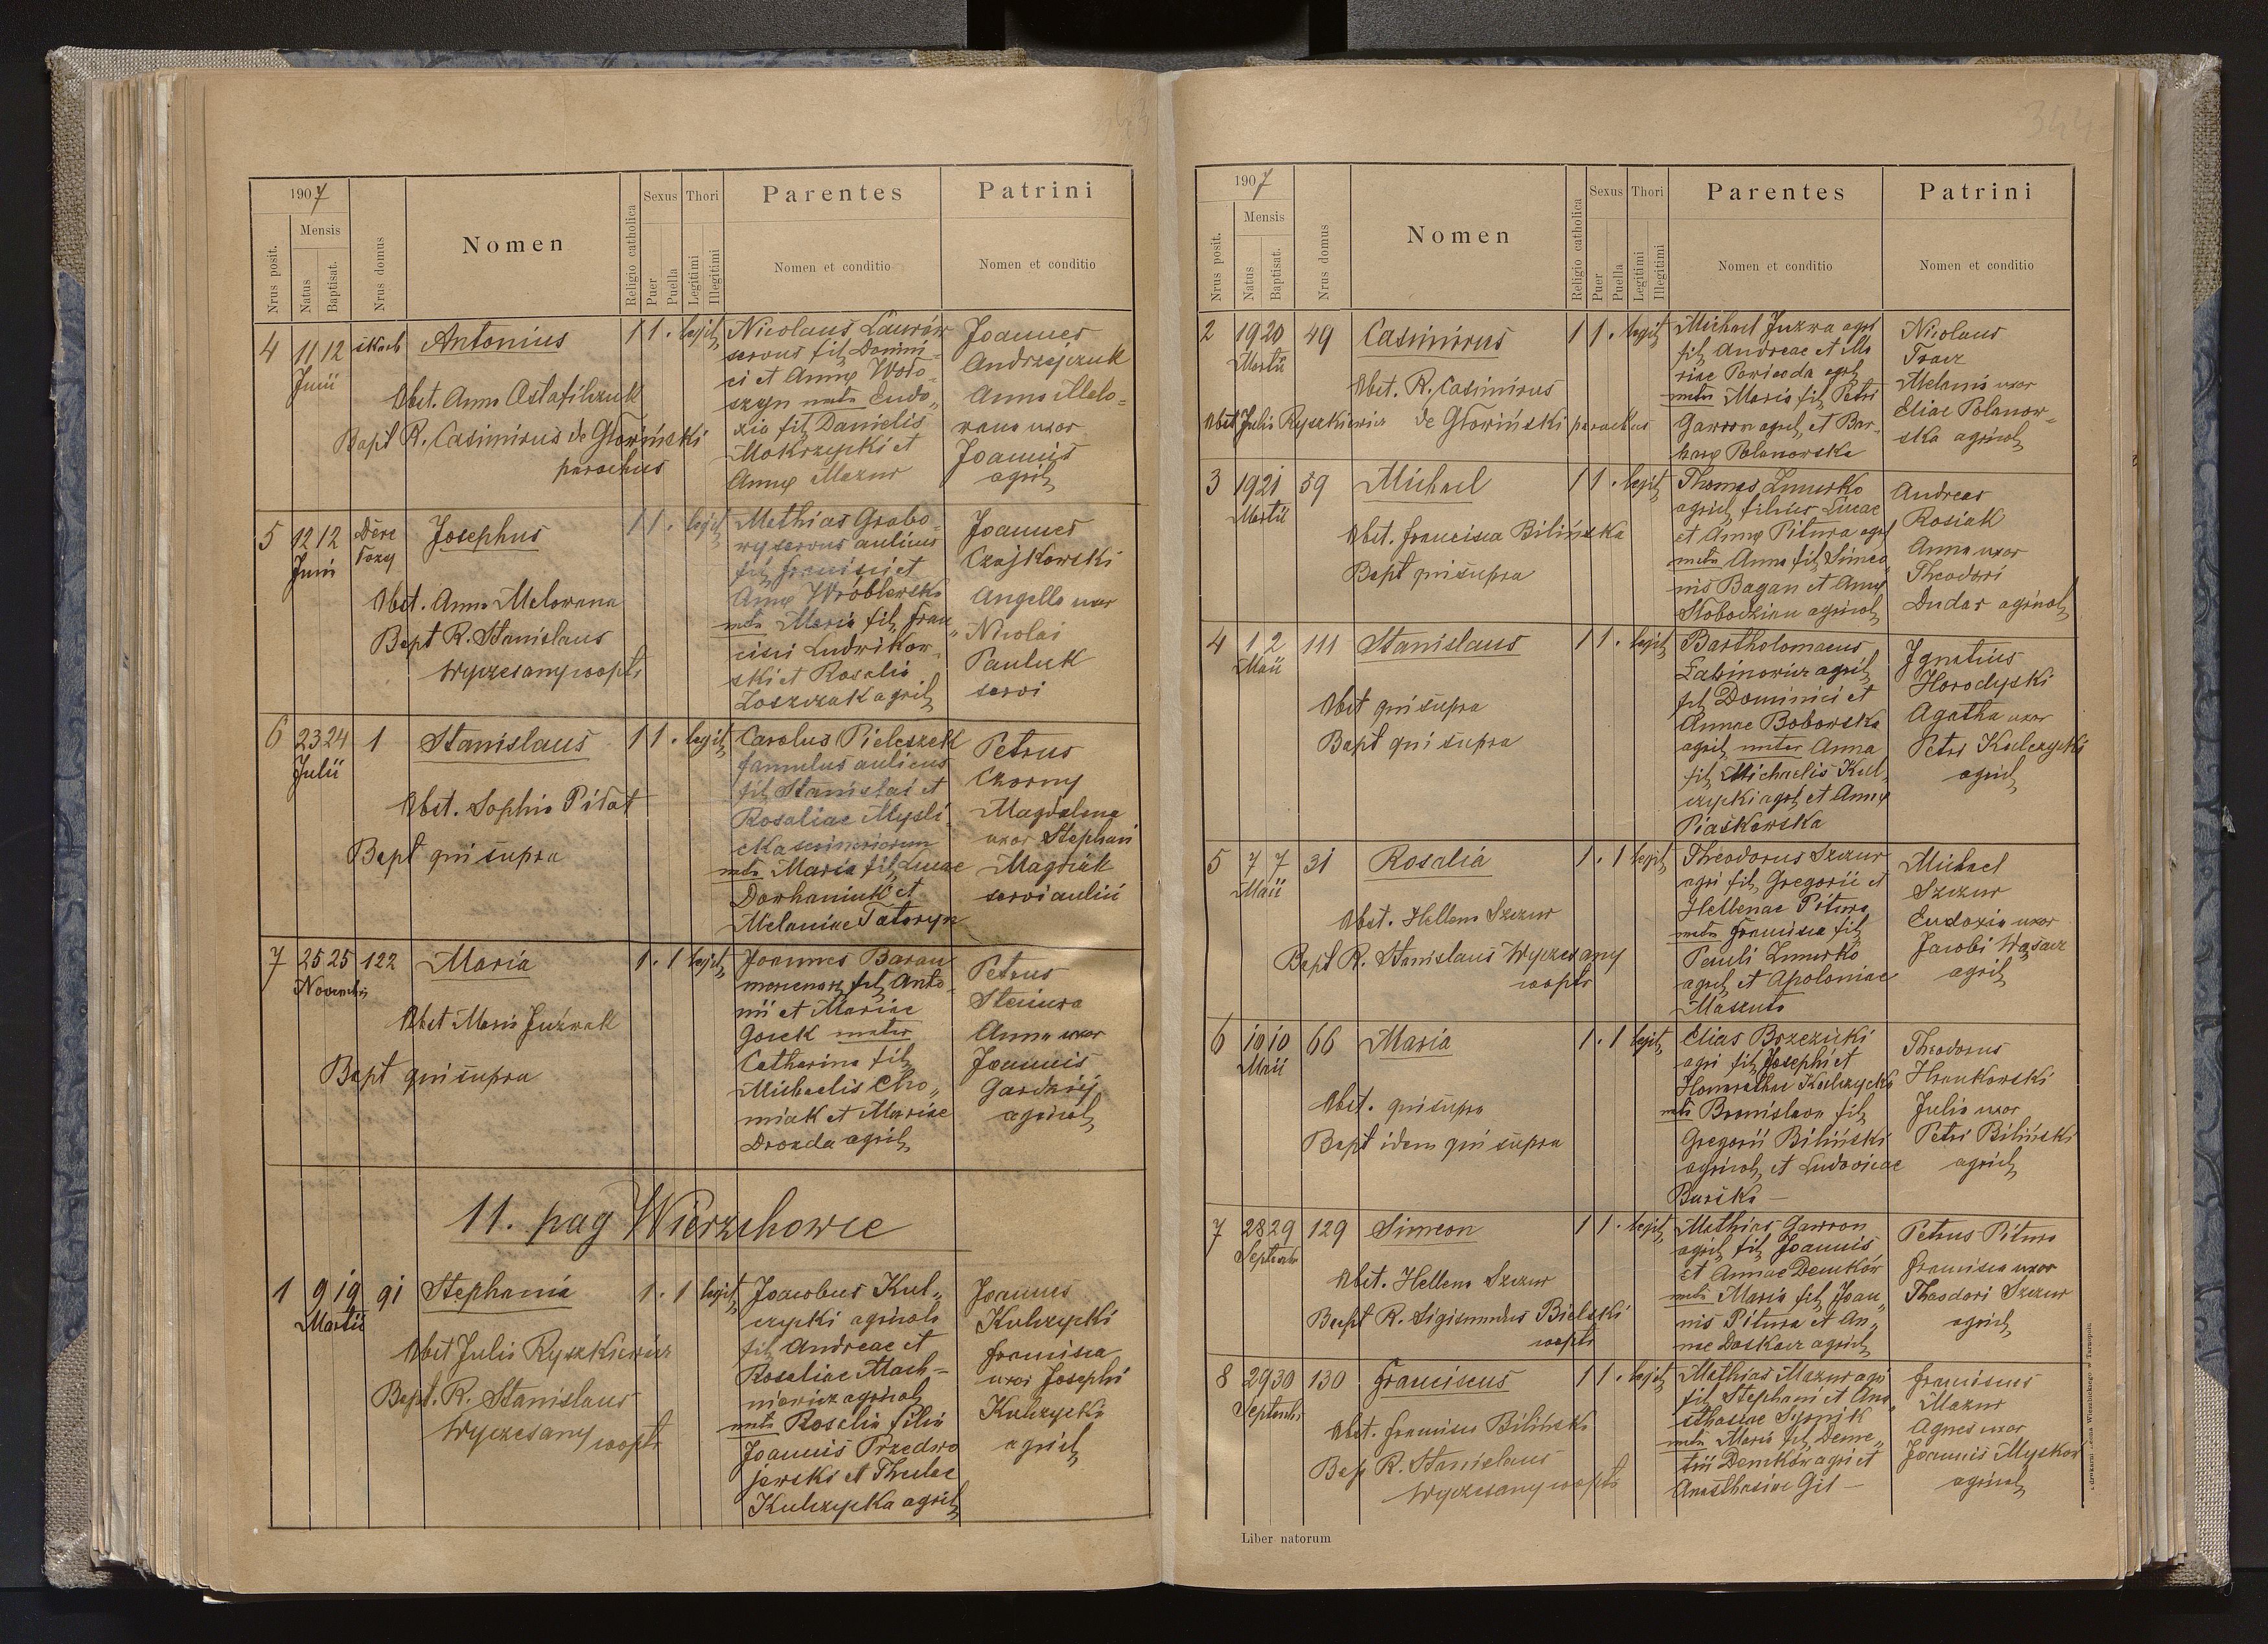 1907
Nrus posit.
Mensis
Natus
Baptisat.
Nrus domus
Nomen
Religio catholica
Sexus
Puer
Puella
Thori
Legitimi
Illegitimi
Parentes
Nomen et conditio
Patrini
Nomen et conditio
4 11 12 Antonius 1 1 . legit
Junii
Obst. Anna Ostafilczuk
Bapt R. Casimirus de Głowiński
parochus
Nicolaus
servus fil Domini-
ci et Annæ Woło-
szyn mater Eudo„
xia fil Danielis
Mokrzycki et
Annæ Mazur
Joannes
Andrzejczuk
Anna Melo-
wana uxor
Joannis
agric
5 12 12 Josephus 1 1 . legit
Junii
Obst. Anna Melowana
Bapt R. Stanislaus
Wyczesany coopts
Mathias Grabo-
wy servus aulicus
fil Francisci et
Annæ Wróblewska
mater Maria fil Fran„
cisci Ludwikow-
ski et Rosalia
Zoszczak agric
Joannes
Czajkowski
Angella uxor
Nicolai
Pauluk
servi
6 23 24 1 Stanislaus 1 1 . legit
Julii
Obst. Sophia Piłat
Bapt qui supra
Carolus Pieleszek
famulus aulicus
fil Stanislai et
Rosaliae Myśli-
cka
mater Maria fil Lucae
Dorhaniuk et
Melaniae Tataryn
Petrus
Czorny
Magdalena
uxor Stephani
Magdziak
servi aulici
7 25 25 122 Maria 1 . 1 legit
Novembris
Obst Maria Juzwak
Bapt qui supra
Joannes Baran
mercenar fil Anto-
nii et Mariae
Gorek mater
Catharina fil
Michaelis Cho„
miak et Mariae
Drozda agric
Petrus
Steciura
Anna uxor
Joannis
Gardziej
agricol
11. pag Wierzchowce
1 9 19 91 Stephania 1 . 1 legit
Martii
Obst Julia Ryszkiewicz
Bapt. R. Stanislaus
Wyczesany coopts
Jacobus Kul„
czycki agricola
fil Andreae et
Rosaliae Mach-
niewicz agricol
mater Rosalia filia
Joannis Przedwo
jewski et Theclae
Kulczycka agric
Joannes
Kulczycki
Francisca
uxor Josephi
Kulczycki
agric
344
1907
Nrus posit.
Mensis
Natus
Baptisat.
Nrus domus
Nomen
Religio catholica
Sexus
Puer
Puella
Thori
Legitimi
Illegitimi
Parentes
Nomen et conditio
Patrini
Nomen et conditio
2 19 20 49 Casimirus 1 1 . legit
Martii
Obst. R. Casimirus
Obst Julia Ryszkiewicz de Głowiński parochus
Michael Juzwa agric
fil Andreae et Ma
riae agric
mater Maria fil Petri
Gawron agric et Bar-
barae Polanowska
Nicolaus
Tracz
Melania uxor
Eliae Polanow-
ska agricol
3 19 21 59 Michael 1 1 . legit
Martii
Obst. Francisca Bilińska
Bapt qui supra
Thomas Zmurko
agric filius Lucae
et Annæ Pitura agric
mater Anna fil Simeo
nis Bagan et Annæ
Słobodzian agricol
Andreas
Rosiak
Anna uxor
Theodori
Dudar agricol
4 1 2 111 Stanislaus 1 1 . legit
Maii
Obst qui supra
Bapt qui supra
Bartholomaeus
Łabinowicz agric
fil Dominici et
Annae Bobowska
agric mater Anna
fil Michaelis Kul„
czycki agric et Annæ
Piaskowska
Ignatius
Horodyski
Agatha uxor
Petri Kulczycki
agric
5 7 7 31 Rosalia 1 . 1 legit
Maii
Obst. Hellena Szczur
Bapt R. Stanislaus Wyczesany
coopts
Theodorus Szczur
agri fil Gregorii et
Hellenae Pitura
mater Francisca fil
Pauli Zmurko
agric et Apoloniae
Maszuta
Michael
Szczur
Eudoxia uxor
Jacobi Wąsacz
agric
6 10 10 66 Maria 1 . 1 legit
Maii
Obst. qui supra
Bapt idem qui supra
Elias Brzezicki
agri fil Josephi et
Honorathae Kulczycka
mater Bronislava fil
Gregorii Biliński
agricol et Ludovicae
Burska —
Theodorus
Hrankowski
Julia uxor
Petri Biliński
agric
7 28 29 129 Simeon 1 1 . legit
Septemb
Obst. Hellena Szczur
Bapt R. Sigismundus Bielski
coopts
Mathias Gawron
agric fil Joannis
et Annae Demków
mater Maria fil Joan„
nis Pitura et An„
nae Doskocz agric
Petrus Pitura
Francisca uxor
Theodori Szczur
agric
8 29 30 130 Franciscus 1 1 . legit
Septembr
Obst. Francisca Bilińska
Bap R. Stanislaus
Wyczesany coopts
Mathias Mazur agri
fil Stephani et Ana
sthasiae
mater Maria fil Deme„
trii Demków agri et
Anasthasiae Gil —
Franciscus
Mazur
Agnes uxor
Joannis Myskow
agricol
Liber natorum
Z drukarni Leona Wierzbickiego w Tarnopolu